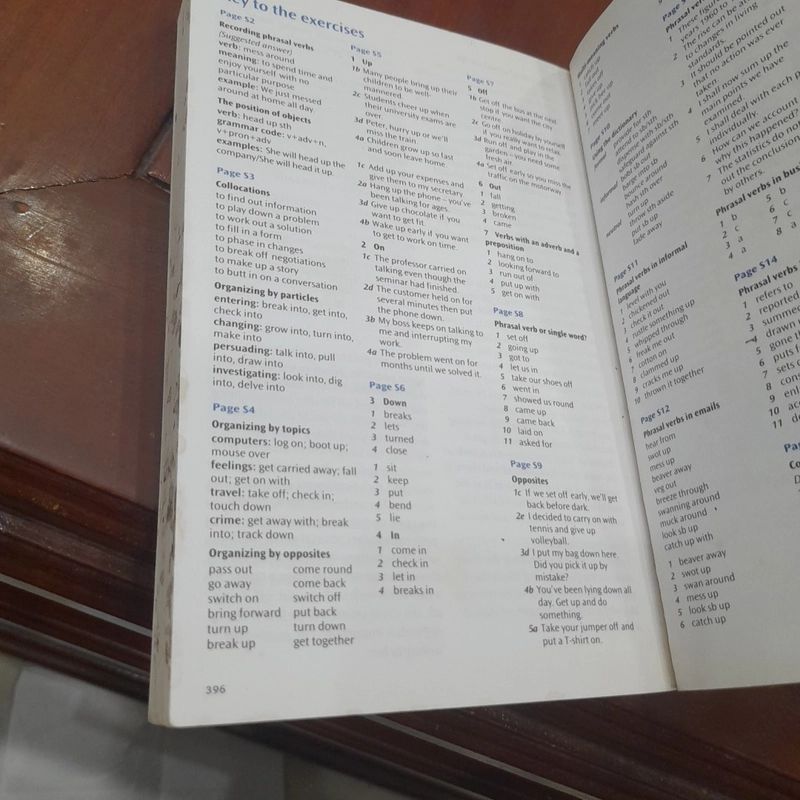 ey to the exercises
Page S2
Recording phrasal verbs
(Suggested answer)
verb: mess around
meaning: to spend time and
enjoy yourself with no
particular purpose
example: We just messed
around at home all day
The position of objects
verb: head up sth
grammar code: v+adv+n,
v+pron+adv
examples: She will head up the
company/She will head it up.
Page S3
Collocations
to find out information
to play down a problem
to work out a solution
to fill in a form
to phase in changes
to break off negotiations
to make up a story
to butt in on a conversation
Organizing by particles
entering: break into, get into,
check into
changing: grow into, turn into,
make into
persuading: talk into, pull
into, draw into
investigating: look into, dig
into, delve into
Page S4
Organizing by topics
computers: log on; boot up;
mouse over
feelings: get carried away; fall
out; get on with
travel: take off; check in;
touch down
crime: get away with; break
into; track down
Organizing by opposites
pass out come round
go away come back
switch on switch off
bring forward put back
turn up turn down
break up get together
396
Page S5
1 Up
1b Many people bring up their
children to be well-
mannered.
2c Students cheer up when
their university exams are
over.
3d Peter, hurry up or we'll
miss the train.
4a Children grow up so fast
and soon leave home
1c Add up your expenses and
give them to my secretary
2a Hang up the phone – you've
been talking for ages.
3d Give up chocolate if you
want to get fit.
4b Wake up early if you want
to get to work on time.
2 On
1c The professor carried on
talking even though the
seminar had finished.
2d The customer held on for
several minutes then put
the phone down.
3b My boss keeps on talking to
me and interrupting my
work.
4a The problem went on for
months until we solved it.
Page S6
3 Down
1 breaks
2 lets
3 turned
4 close
1 sit
2 keep
3 put
4 bend
5 lie
4 In
1 come in
2 check in
3 let in
4 breaks in
Page S7
5 Off
1b Get off the bus at the next
stop if you want the city
centre
2c Go off on holiday by yourself
if you really want to relax.
3d Run off and play in the
garden – you need some
fresh air
4a Set off early so you miss the
traffic on the motorway
6 Out
1 fall
2 getting
3 broken
4 came
7 Verbs with an adverb and a
preposition
1 hang on to
2 looking forward to
3 run out of
4 put up with
5 get on with
Page S8
Phrasal verb or single word?
1 set off
2 going up
3 got to
4 let us in
5 take our shoes off
6 went in
7 showed us round
8 came up
9 came back
10 laid on
11 asked for
Page S9
Opposites
1c If we set off early, we'll get
back before dark.
2e I decided to carry on with
tennis and give up
volleyball.
3d I put my bag down here.
Did you pick it up by
mistake?
4b You've been lying down all
day. Get up and do
something.
5a Take your jumper off and
put a T-shirt on.
Page S10
turn up
throw sth aside
put sb up
fade away
Page S11
Phrasal verbs in informal
language
1 level with you
2 chickened out
3 check it out
4 rustle something up
5 whipped through
6 freak me out
7 cotton on
8 clammed up
9 cracks me up
10 thrown it together
Page S12
Phrasal verbs in emails
hear from
swot up
mess up
beaver away
veg out
breeze through
swanning around
muck around
look sb up
catch up with
1 beaver away
2 swot up
3 swan around
4 mess up
5 look sb up
6 catch up
Phrasal ver
These figu
years 1960 to
2 The rise can be a
to changes in living
standards.
3 It should be pointed out
that no action was ever
4 I shall now sum up the
main points we have
examined.
5 I shall deal with each p
individually.
6 How can we account
why this happened?
7 The statistics do no
out the conclusion
by others.
Phrasal verbs in bus
1 b 5 b
2 c 6 c
3 a 7 c
4 a 8 a
Page S14
Phrasal verbs
1 refers to
2 reported
3 summed
4 drawn
5 gone
6 puts
7 sets
8 con
9 en
10 ac
11 d
Pa
Co